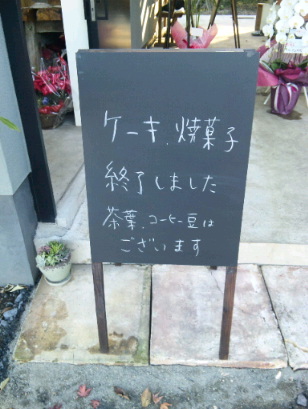 ケーキ、焼菓子
終了しました
茶葉、コーヒー豆は
ございます